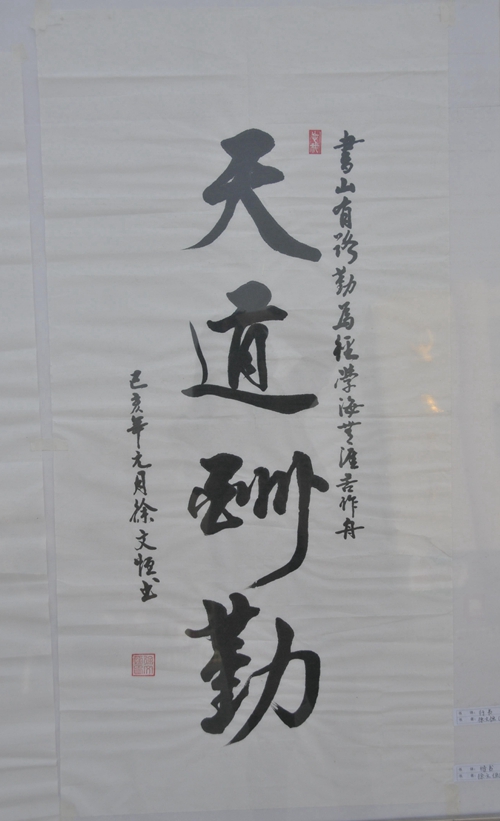 書山有路勤為徑學海無涯苦作舟
天道酬勤
己亥年元月徐文恒书